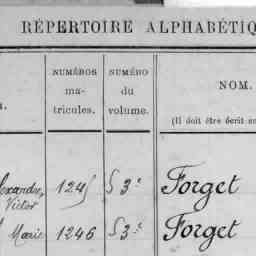 RÉPERTOIRE ALPHABÉTIQ
NUMÉROS
ma-
tricules.
NUMÉRO
du
volume.
NOM.
(Il doit être écrit en
exandre,
Victor
1245
3e
Forget
Marie
1246
3e
Forget